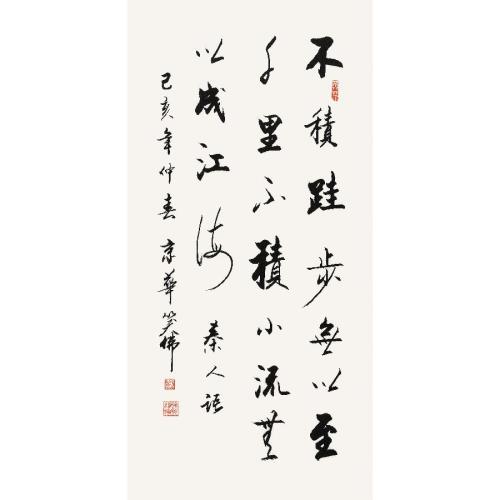 不積跬步無以至
千里不積小流無
以成江海 秦人語
己亥年仲春京華